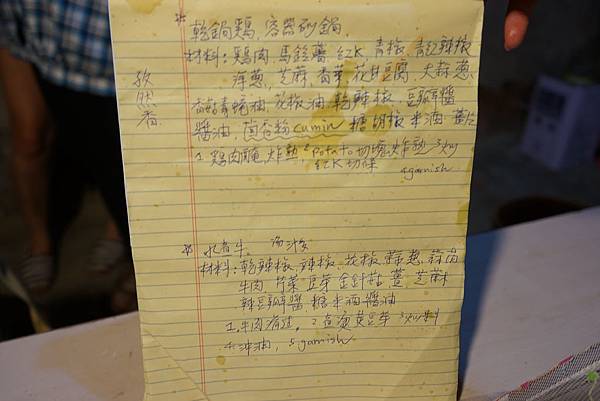 * 乾鍋鷄, 容器砂鍋,
材料: 鷄肉 馬鈴薯 紅K 青椒 青紅辣椒
洋蔥, 芝麻 香菜 花生豆腐 大蒜 蔥
孜然香
蠔油 花椒油 乾辣椒, 豆瓣醬
醬油, 茴香粉 cumin 糖 胡椒 米酒
1. 鷄肉醃 炸熟, 2 potato 切塊 炸熟 3
紅K 切條 4 garnish
* 水煮牛,
材料: 乾辣椒, 辣椒, 花椒 蒜 蔥
牛肉 芹菜 豆芽 金針菇 薑 芝麻
辣豆瓣醬 糖 米酒 醬油
1. 牛肉 2 豆芽 3
4. 油, 5 garnish